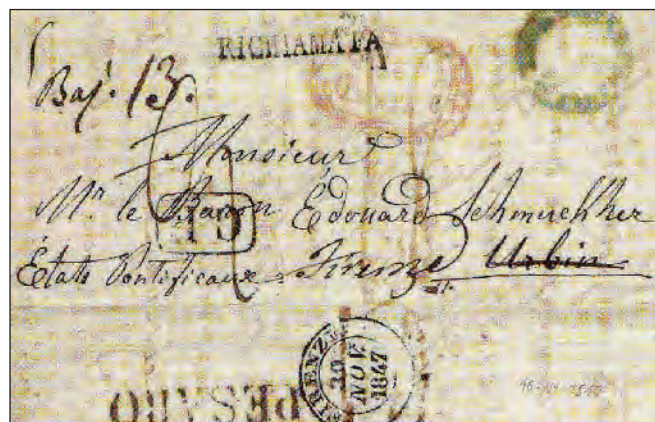 RICHIAMATA
Baj. 13.
Monsieur
Mr. le Baron Édouard
États Pontificaux Firenze Urbin
FIRENZE
30
NOV
1847
PESARO